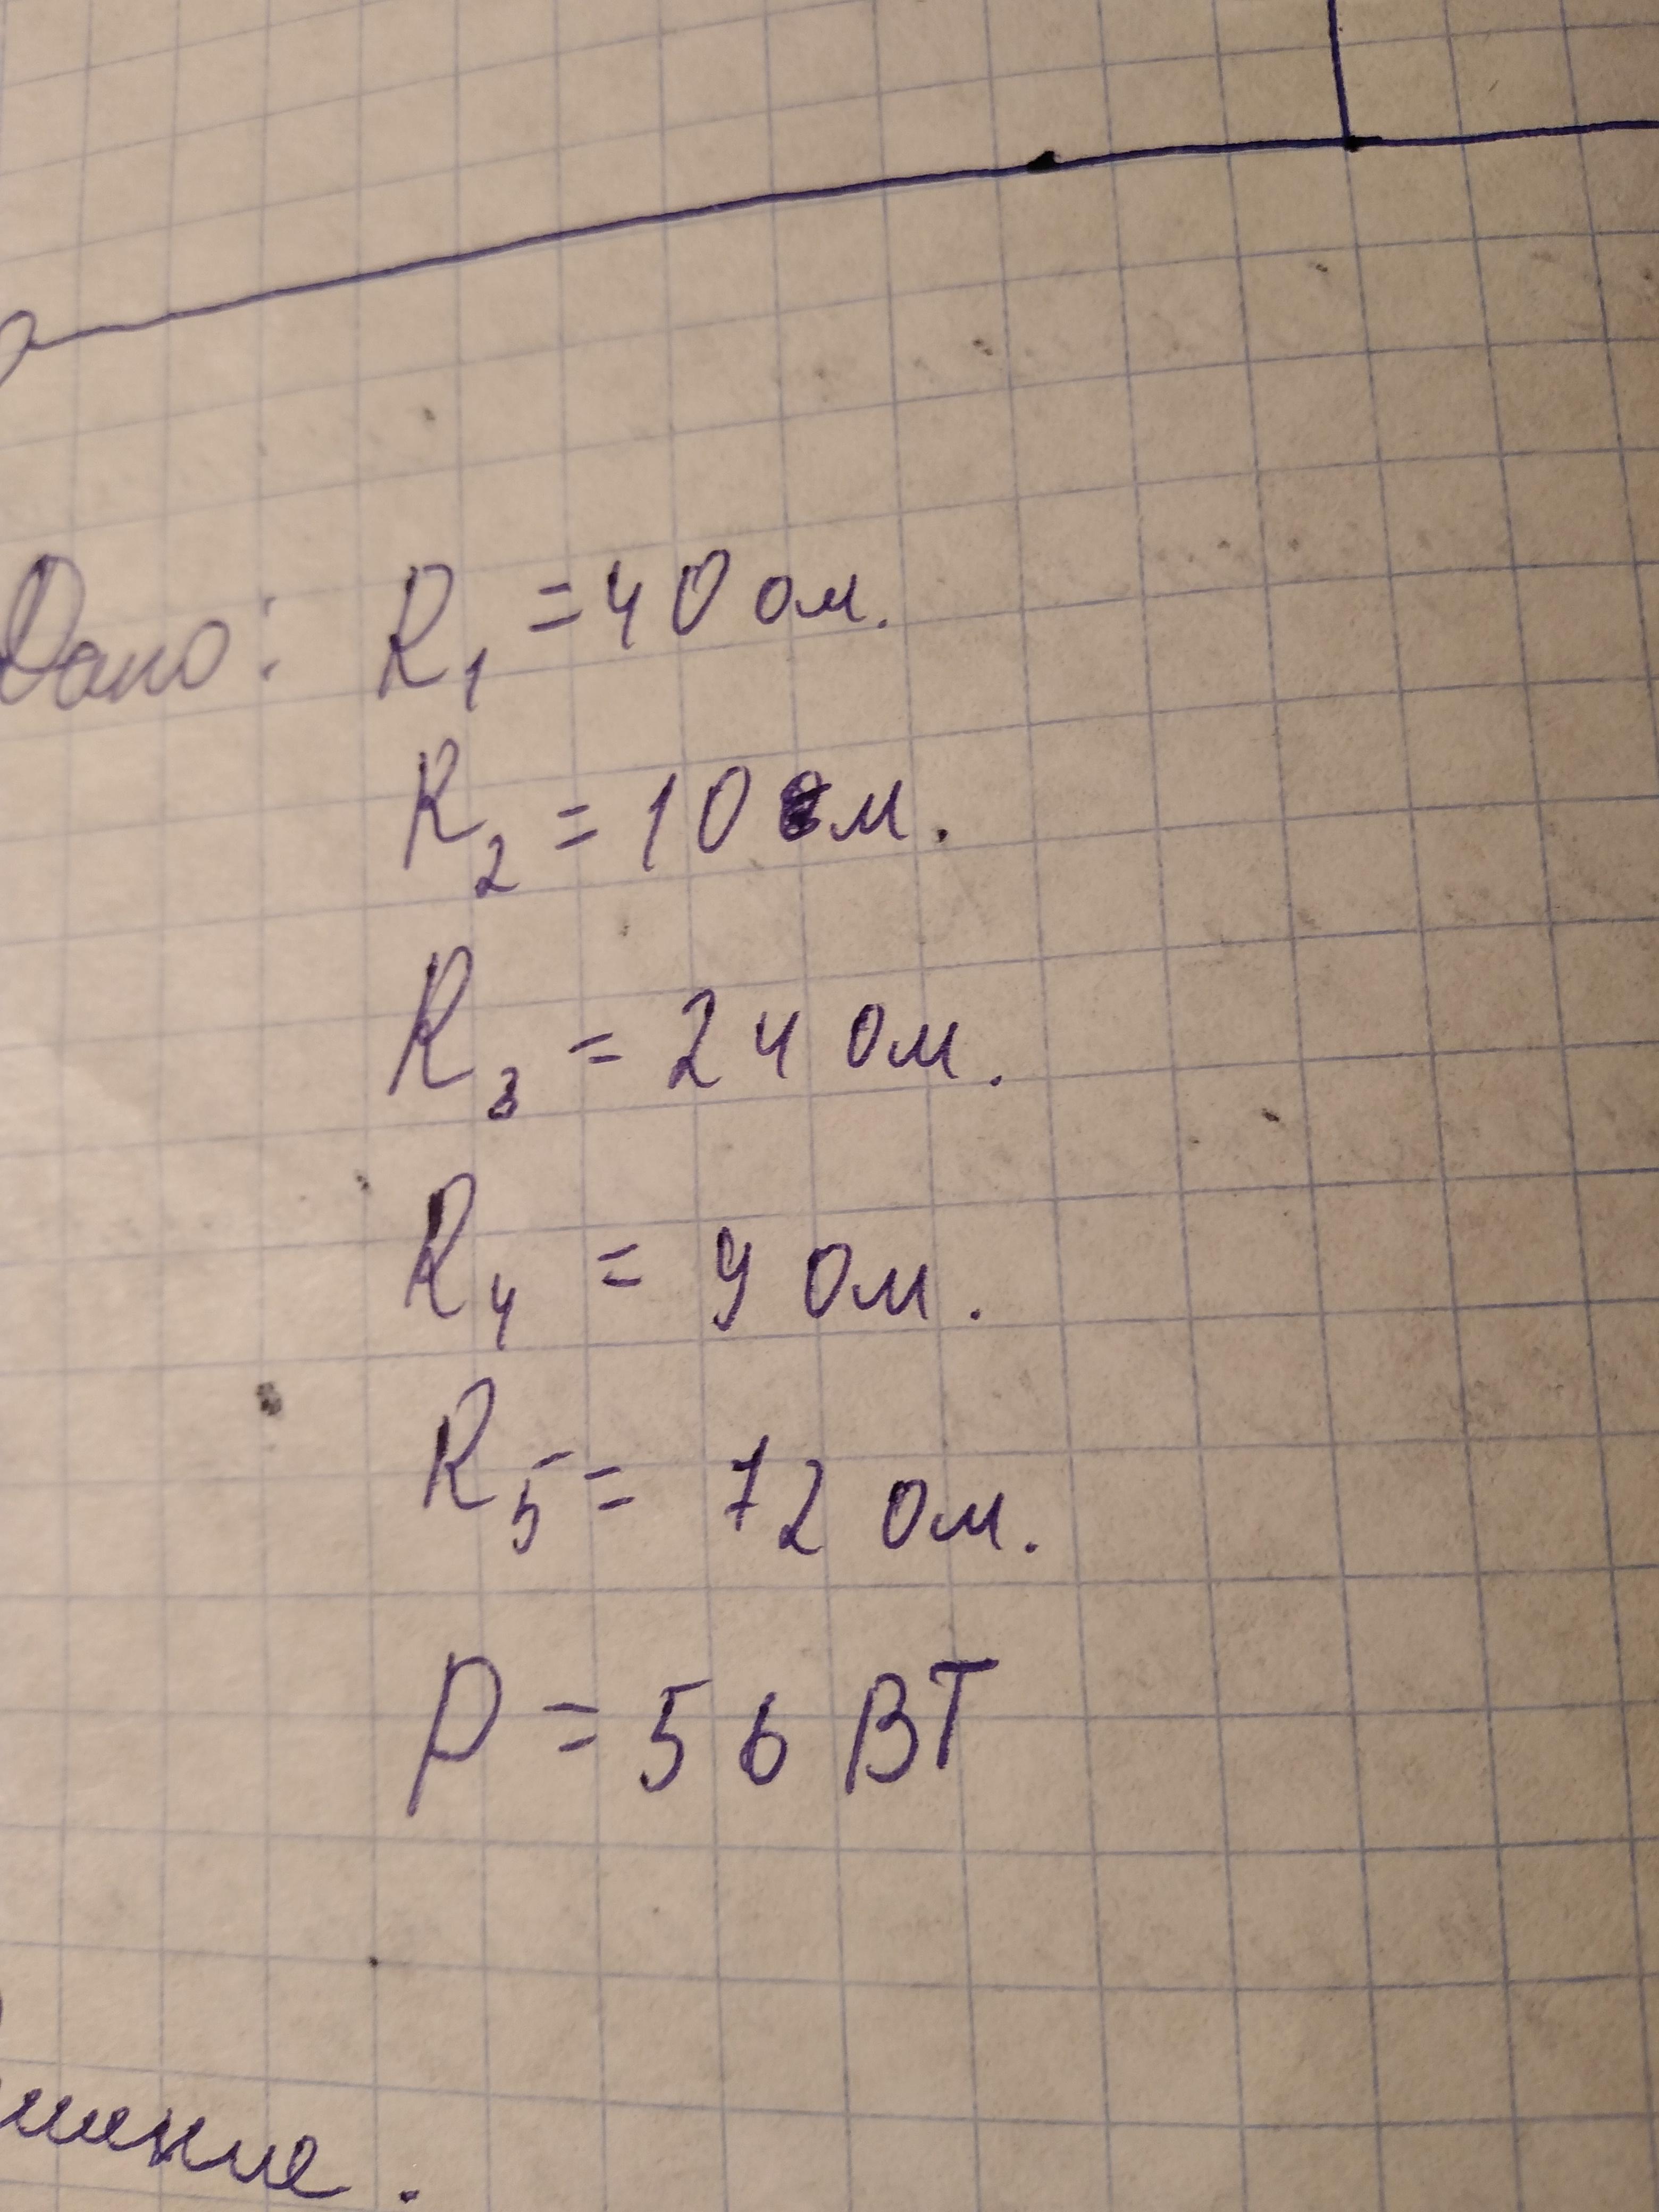 Дано: R1 = 40 ом.
R2 = 10 ом.
R3 = 24 Ом.
R4 = 9 Ом.
R5 = 72 Ом.
P = 56 ВТ